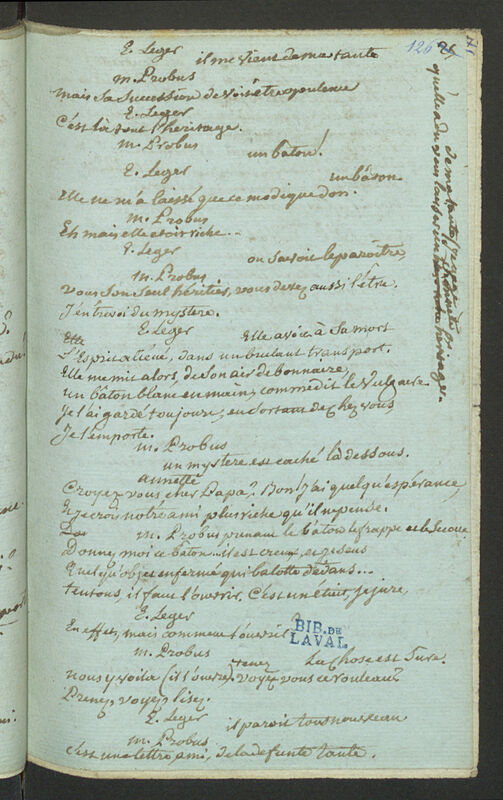 126
E. Leger
il me vient de ma tante
M. Probus
mais sa succession devoit être opulence
E. Leger
C'est là tout l'héritage.
M. Probus
un baton!
E. Leger
un bâton
Elle ne m'a laissé que ce modique don.
M. Probus
Eh mais elle etoit riche...
E. Leger
ou savoit le paroître
M. Probus
Vous son seul héritier, vous devez aussi l'être.
J'entrevoi du mystere.
E. Leger
Elle avoit à sa mort
Elle
L'Esprit aliené, dans un brulant transport.
Elle me mit alors, de son air debonnaire,
un bâton blanc en main, comme dit le vulgaire
Je l'ai gardé toujours, en sortant de chez vous,
Je l'emporte.
M. Probus
un mystere est caché là dessous.
annette
Croyez vous cher Papa? Bon! J'ai quelqu'espérance,
Et je crois notre ami plus riche qu'il ne pense.
M. Probus prenant le bâton le frappe et le secoue
Donnez moi ce baton.. il est creux, et je sens
Quelqu'objet enfermé qui balotte dedans...
tentons, il faut l'ouvrir. C'est un étui, je jure,
E. Leger
En effet, mais comment l'ouvrir?
BIB. DE
LAVAL
M. Probus
La chose est sure.
nous y voilà (il l'ouvre) tenez voyez vous ce rouleau?
Prenez, voyez, lisez.
E. Leger
il paroit tout nouveau
M. Probus
C'est une lettre ami, de la defunte tante.